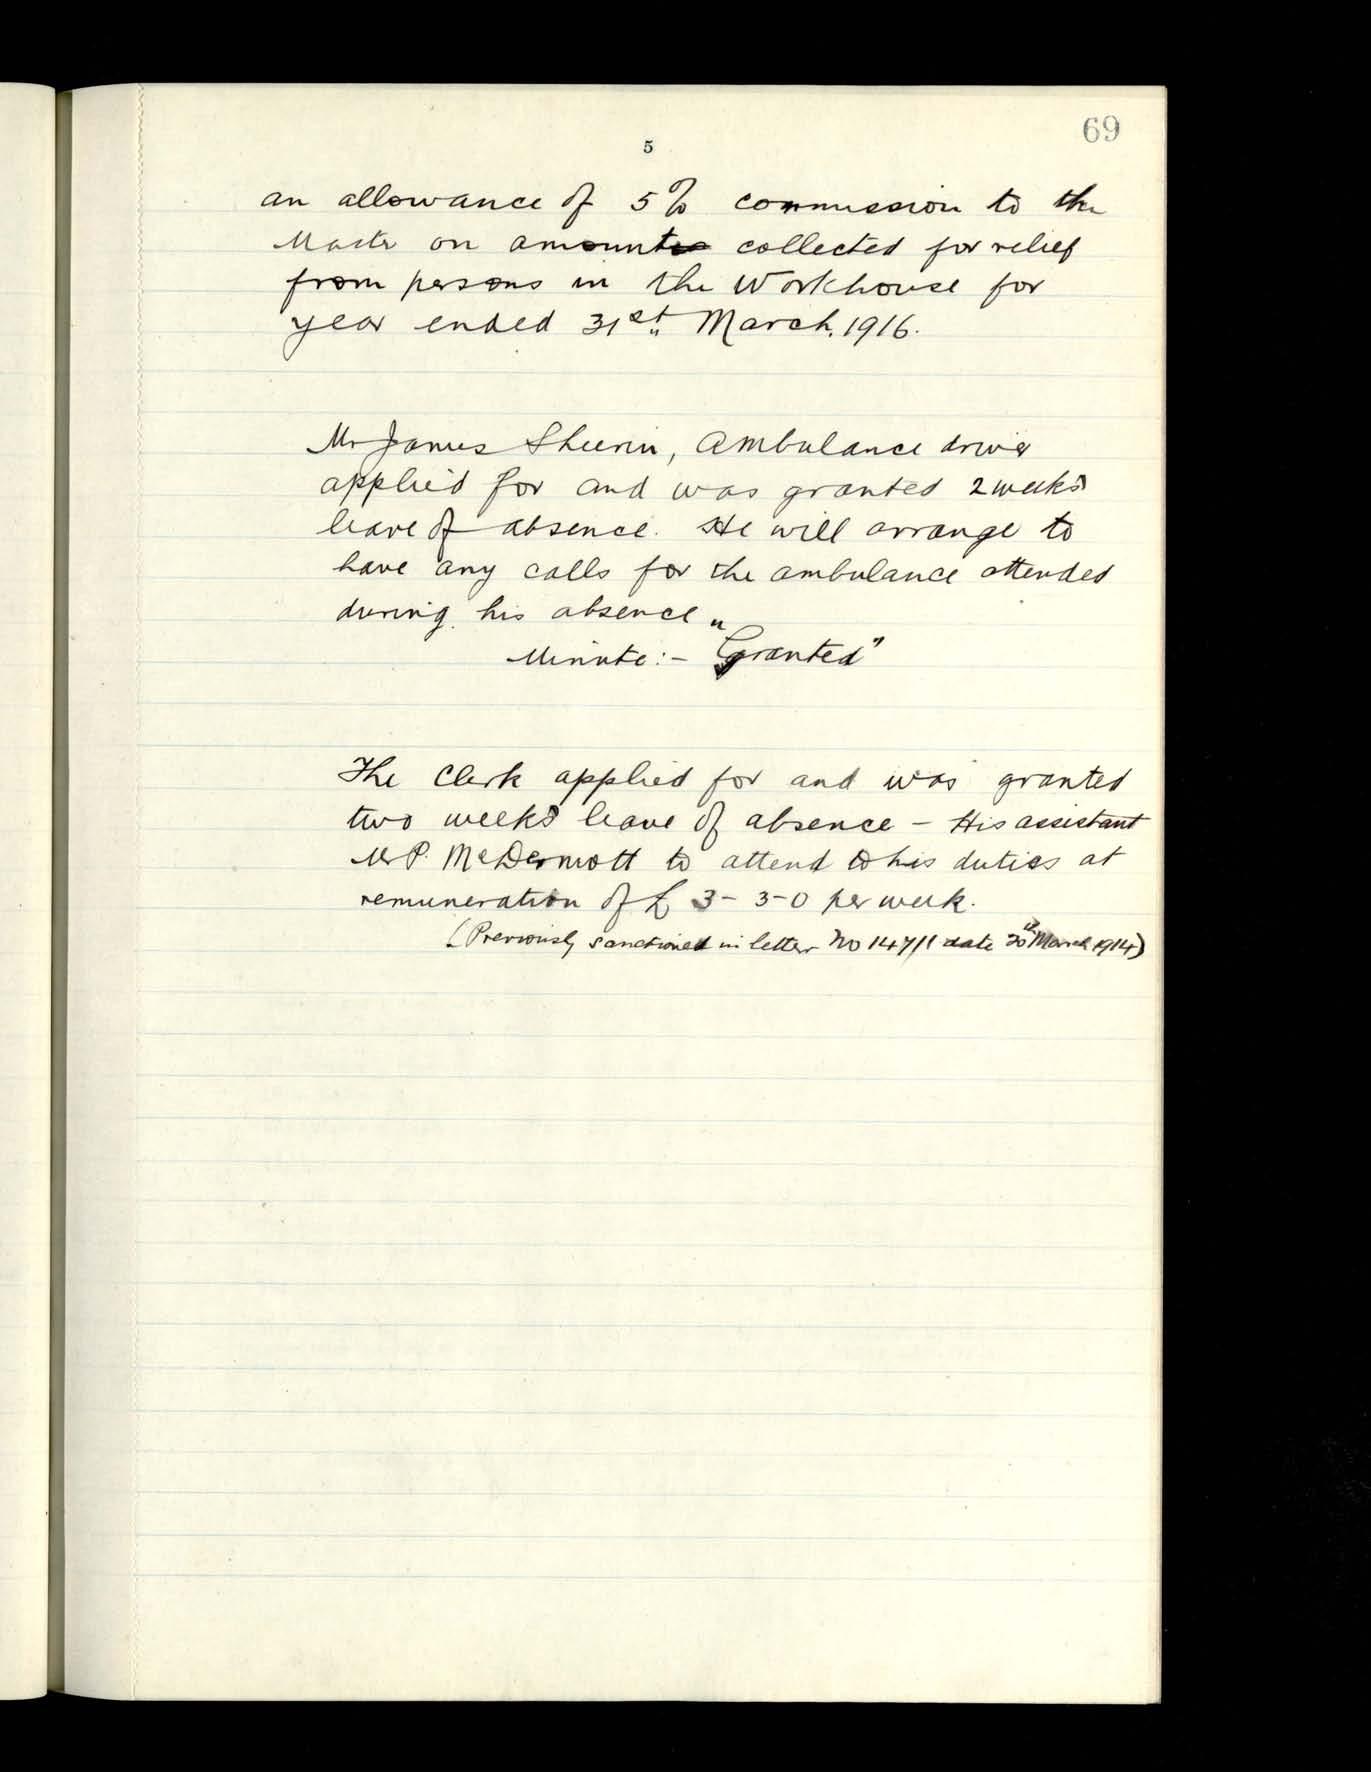 69
5
an allowance of 5% commission to the
Master on amounts collected for relief
from persons in the Workhouse for
year ended 31st March, 1916.
Mr James Sheerin, Ambulance driver
applied for and was granted 2 weeks
leave of absence. He will arrange to
have any calls for the ambulance attended
during his absence
Minute:- "Granted"
The Clerk applied for and was granted
two weeks leave of absence - His assistant
Mr P. McDermott to attend to his duties at
remuneration of £3-3-0 per week.
(Previously sanctioned in letter No date 20th March 1914)